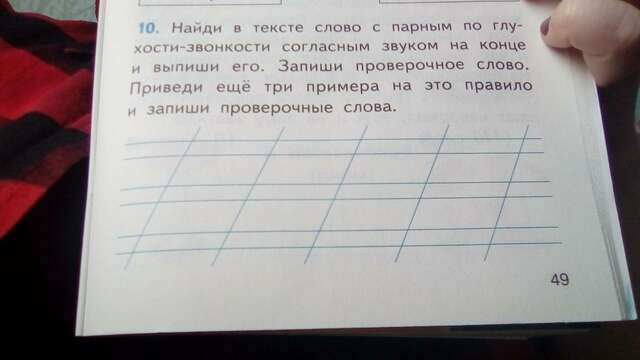 10. Найди в тексте слово с парным по глу-
хости-звонкости согласным звуком на конце
и выпиши его. Запиши проверочное слово.
Приведи ещё три примера на это правило
и запиши проверочные слова.
49